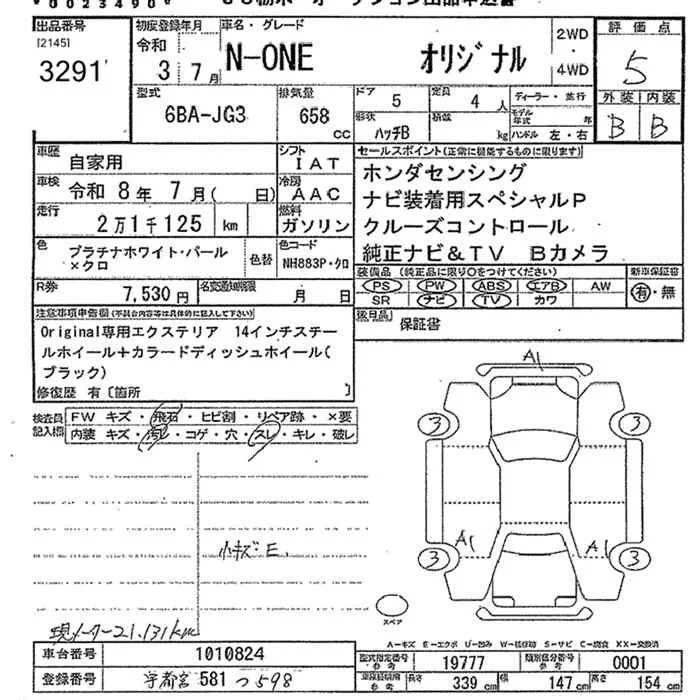 出品番号
[2145]
3291
初度登録年月
令和
3年 7月
車名・グレード
N-ONE オリジナル
2WD
・
4WD
評価点
5
外装 内装
B B
型式
6BA-JG3
排気量
658 cc
ドア
5
定員
4人
形状
ハッチB
積載
kg
ディーラー・並行
モデル年式 年
ハンドル 左・右
車歴
自家用
シフト
IAT
車検
令和 8年 7月( 日)
冷房
AAC
走行
2万1千125 km
燃料
ガソリン
色
プラチナホワイト・パール
×クロ
色替
色コード
NH883P・クロ
R券
7,530円
名変通知期限
月 日
セールスポイント(正常に機能するものに限ります)
ホンダセンシング
ナビ装着用スペシャルP
クルーズコントロール
純正ナビ&TV Bカメラ
装備品 (純正品に限り○をつけてください)
PS PW ABS エアB AW
SR ナビ TV カワ
新車保証書
有・無
後日品
保証書
注意事項申告欄(不具合内容等は具体的に記入して下さい)
Original専用エクステリア 14インチスチー
ルホイール+カラードディッシュホイール(
ブラック)
修復歴 有〔箇所 〕
検査員記入欄
FW キズ・飛石・ヒビ割・リペア跡・×要
内装 キズ・汚レ・コゲ・穴・スレ・キレ・破レ
小キズ E.
現メーター21,131km
A1
3 3
A1 A1
3 3
スペア
A-キズ E-エクボ U-凹み W-補修跡 S-サビ C-腐食 XX-交換済
車台番号
1010824
登録番号
宇都宮 581 つ 598
型式指定番号
参考
19777
類別区分番号
参考
0001
車検証記載
参考
長さ 339cm 幅 147cm 高さ 154cm